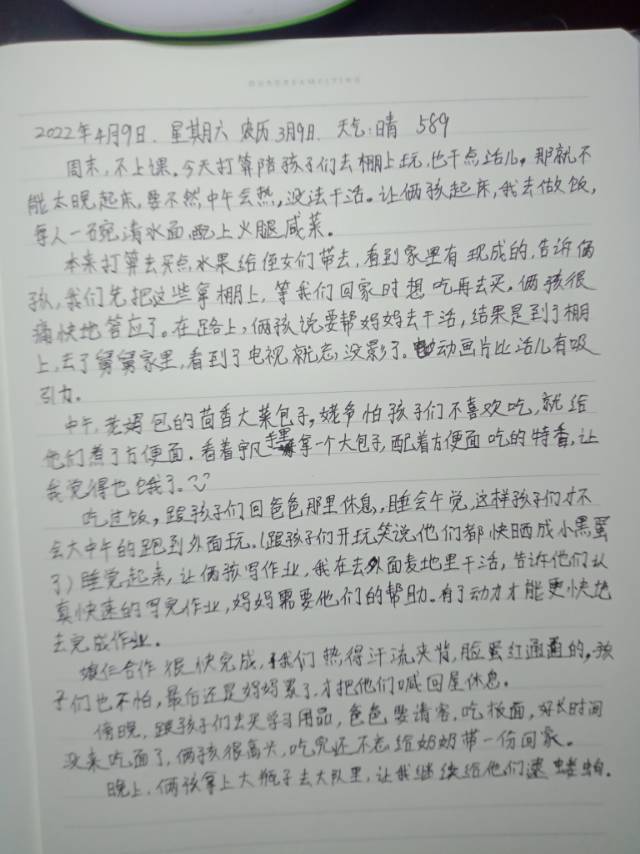 2022年4月9日. 星期六 农历3月9日. 天气:晴 589
周末,不上课.今天打算陪孩子们去棚上玩,也干点活儿.那就不
能太晚起床,要不然中午会热,没法干活.让俩孩起床,我去做饭,
每人一碗清水面,配上火腿咸菜。
本来打算去买点水果给侄女们带去,看到家里有现成的,告诉俩
孩,我们先把这些拿棚上,等我们回家时想吃再去买.俩孩很
痛快地答应了。在路上,俩孩说要帮妈妈去干活,结果是到了棚
上,去了舅舅家里,看到了电视就忘,没影了.动画片比活儿有吸
引力.
中午,老妈包的茴香大菜包子,姥爷怕孩子们不喜欢吃,就给
他们煮了方便面.看着宇凡手里拿一个大包子,配着方便面吃的特香,让
我觉得也饿了。
吃过饭,跟孩子们回爸爸那里休息,睡会午觉,这样孩子们才不
会大中午的跑到外面玩.(跟孩子们开玩笑说他们都快晒成小黑蛋
了)睡觉起来,让俩孩写作业,我在去外面麦地里干活,告诉他们认
真快速的写完作业,妈妈需要他们的帮助.有了动力才能更快地
去完成作业.
娘仨合作很快完成,我们热得汗流夹背,脸蛋红通通的,孩
子们也不怕,最后还是妈妈累了,才把他们喊回屋休息.
傍晚,跟孩子们去买学习用品,爸爸要请客,吃板面,好长时间
没来吃面了,俩孩很高兴,吃完还不忘给奶奶带一份回家。
晚上,俩孩拿上大瓶子去大队里,让我继续给他们逮蝼蛄.